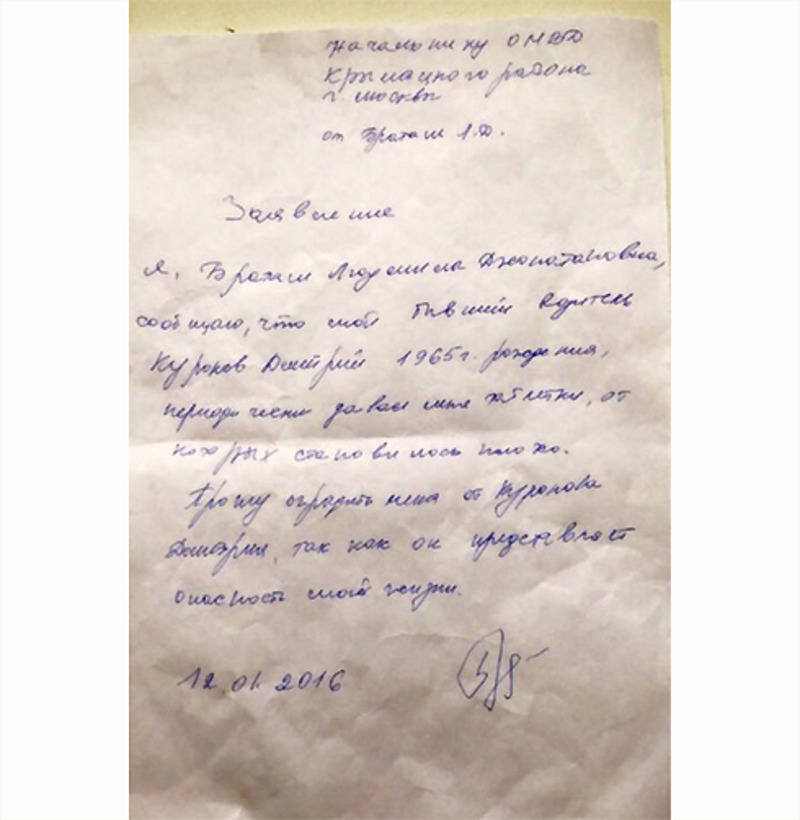 Начальнику ОМВД
Крылатского района
г. Москвы
от Браташ Л.Д.
Заявление
Я, Браташ Людмила Джонатановна,
сообщаю, что мой бывший водитель
Куронов Дмитрий 1965 г. рождения,
периодически давал мне таблетки, от
которых становилось плохо.
Прошу оградить меня от Куронова
Дмитрия, так как он представляет
опасность моей жизни.
12.01.2016